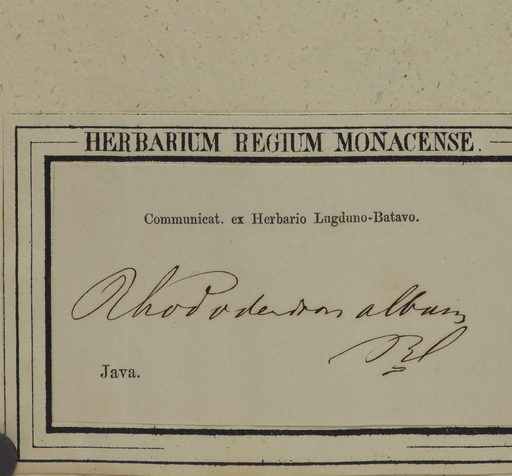 HERBARIUM REGIUM MONACENSE.
Communicat. ex Herbario Lugduno-Batavo.
Rhododendron album
Bl
Java.